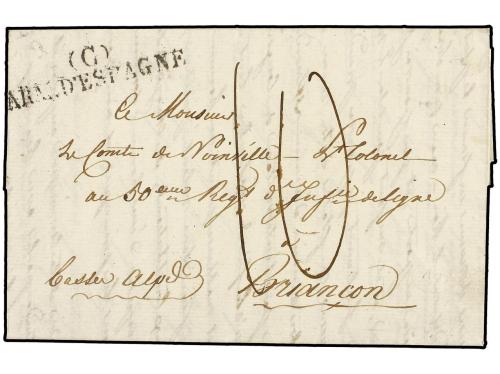 (G)
ARM. D'ESPAGNE
10
A Monsieur
Le Comte de Noinville Lt Colonel
au 50eme Regt d'Infrie de ligne
à
Basses Alpes Briançon